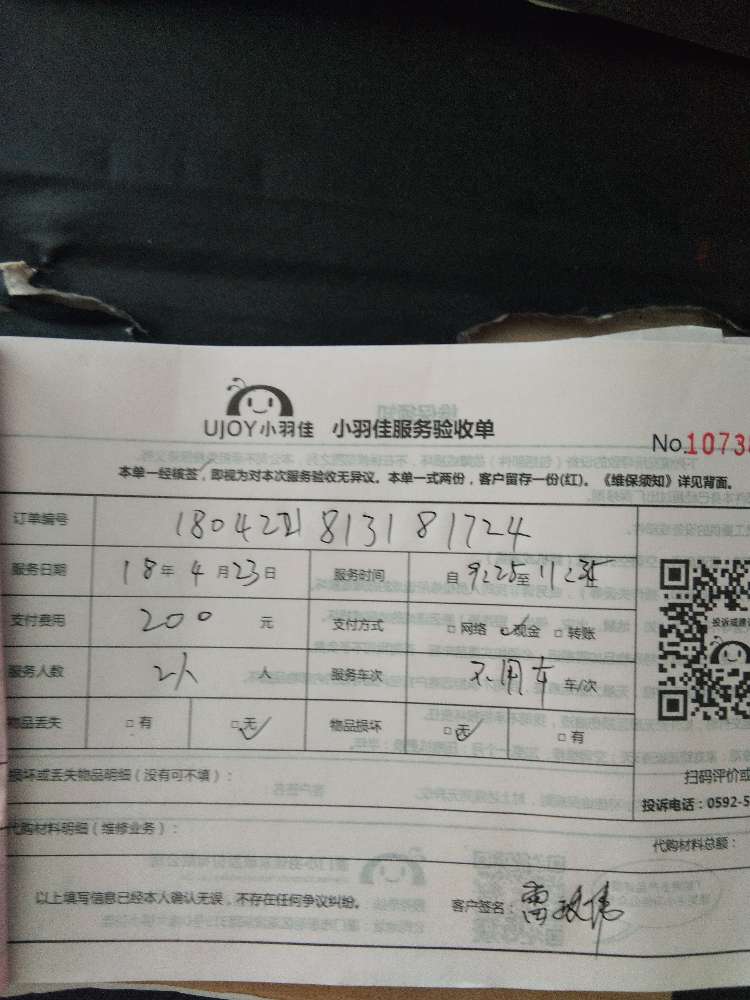 UJOY小羽佳 小羽佳服务验收单
No.1073
本单一经核签，即视为对本次服务验收无异议。本单一式两份，客户留存一份(红)。《维保须知》详见背面。
订单编号
服务日期 18年4月23日 服务时间 自9:25至11:25
支付费用 200元 支付方式 □网络 □现金 □转账
投诉或建议
服务人数 2人 人 服务车次 不用车 车/次
物品丢失 □有 □无 物品损坏 □无 □有
损坏或丢失物品明细（没有可不填）：
扫码评价或
投诉电话：0592-5
代购材料明细（维修业务）：
代购材料总额：
以上填写信息已经本人确认无误，不存在任何争议纠纷。 客户签名：